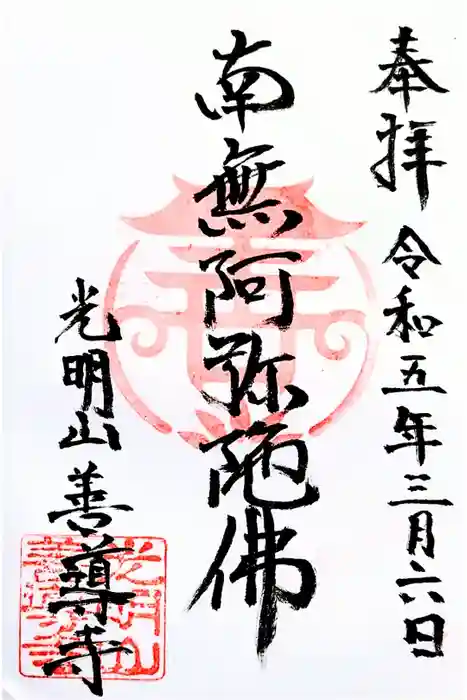 奉拝 令和五年三月六日
南無阿弥陀佛
光明山 善導寺